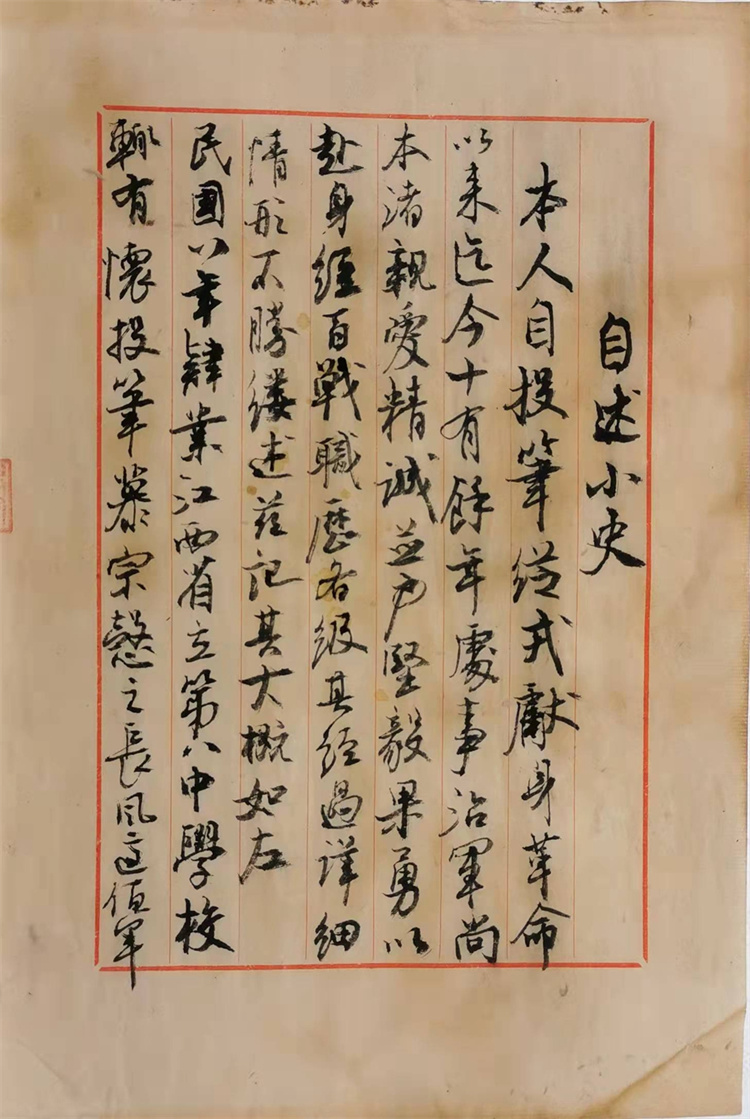 自述小史
本人自投筆從戎獻身革命
以来迄今十有餘年處事治軍尚
本諸親愛精誠並力堅毅果勇以
赴身經百戰職歷各級其經過詳細
情形不勝縷述茲記其大概如左
民國八年肄業江西省立第八中學校
輒有懷投筆慕宗愨之長風適值軍